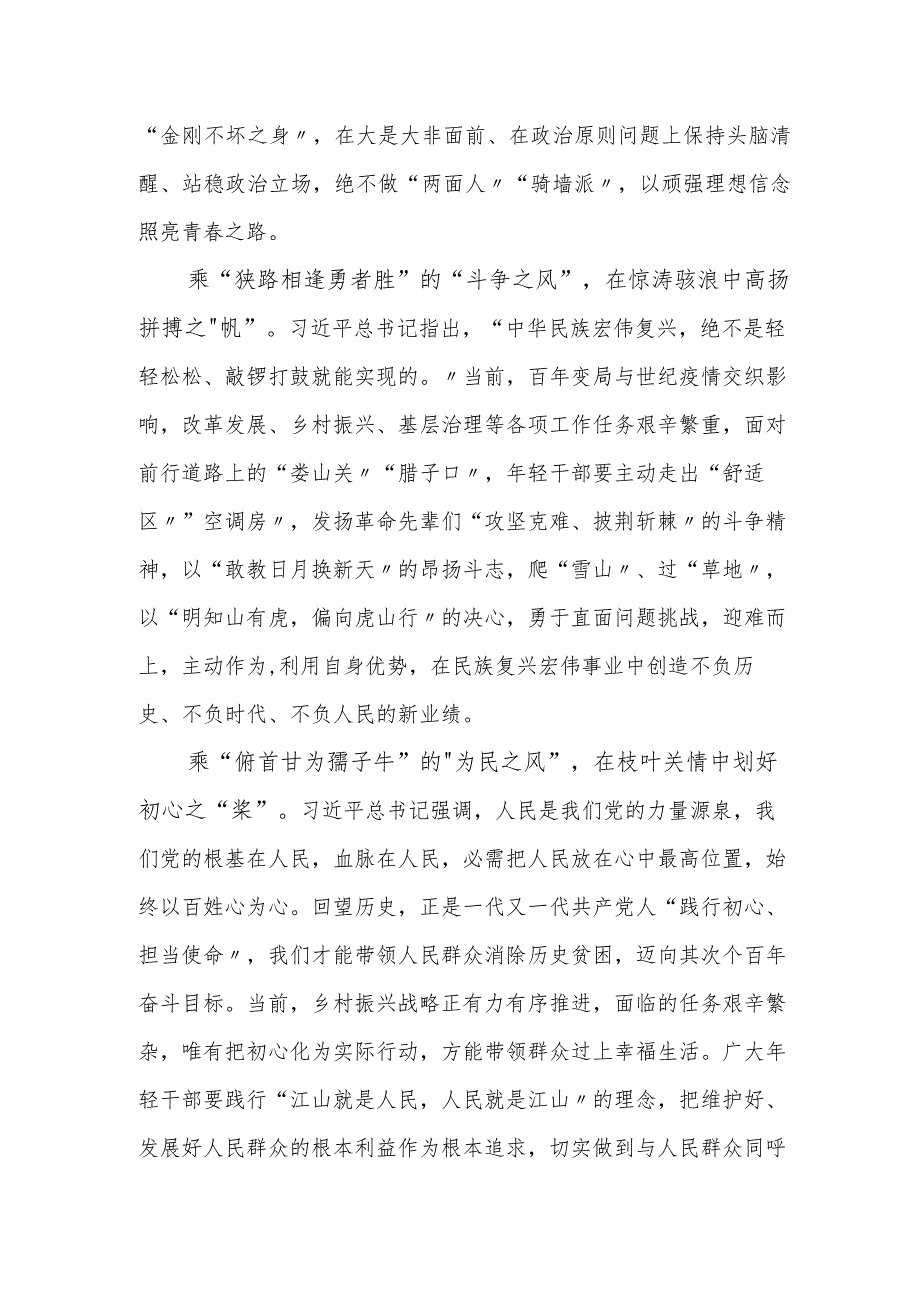 “金刚不坏之身〃，在大是大非面前、在政治原则问题上保持头脑清
醒、站稳政治立场，绝不做“两面人〃“骑墙派〃，以顽强理想信念
照亮青春之路。
乘“狭路相逢勇者胜”的“斗争之风”，在惊涛骇浪中高扬
拼搏之"帆”。习近平总书记指出，“中华民族宏伟复兴，绝不是轻
轻松松、敲锣打鼓就能实现的。〃当前，百年变局与世纪疫情交织影
响，改革发展、乡村振兴、基层治理等各项工作任务艰辛繁重，面对
前行道路上的“娄山关〃“腊子口〃，年轻干部要主动走出“舒适
区〃”空调房〃，发扬革命先辈们“攻坚克难、披荆斩棘〃的斗争精
神，以“敢教日月换新天〃的昂扬斗志，爬“雪山〃、过“草地〃，
以“明知山有虎，偏向虎山行〃的决心，勇于直面问题挑战，迎难而
上，主动作为,利用自身优势，在民族复兴宏伟事业中创造不负历
史、不负时代、不负人民的新业绩。
乘“俯首甘为孺子牛”的"为民之风”，在枝叶关情中划好
初心之“桨”。习近平总书记强调，人民是我们党的力量源泉，我
们党的根基在人民，血脉在人民，必需把人民放在心中最高位置，始
终以百姓心为心。回望历史，正是一代又一代共产党人“践行初心、
担当使命〃，我们才能带领人民群众消除历史贫困，迈向其次个百年
奋斗目标。当前，乡村振兴战略正有力有序推进，面临的任务艰辛繁
杂，唯有把初心化为实际行动，方能带领群众过上幸福生活。广大年
轻干部要践行“江山就是人民，人民就是江山〃的理念，把维护好、
发展好人民群众的根本利益作为根本追求，切实做到与人民群众同呼